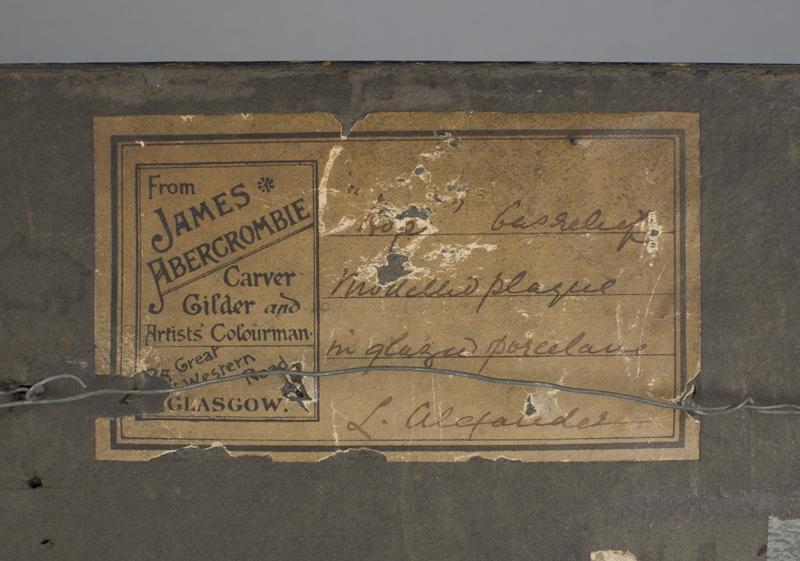 From
JAMES
ABERCROMBIE
Carver
Gilder and
Artists' Colourman.
Great
Western Road
GLASGOW.
basrelief
Modelled plaque
in glazed porcelain
L. Alexander